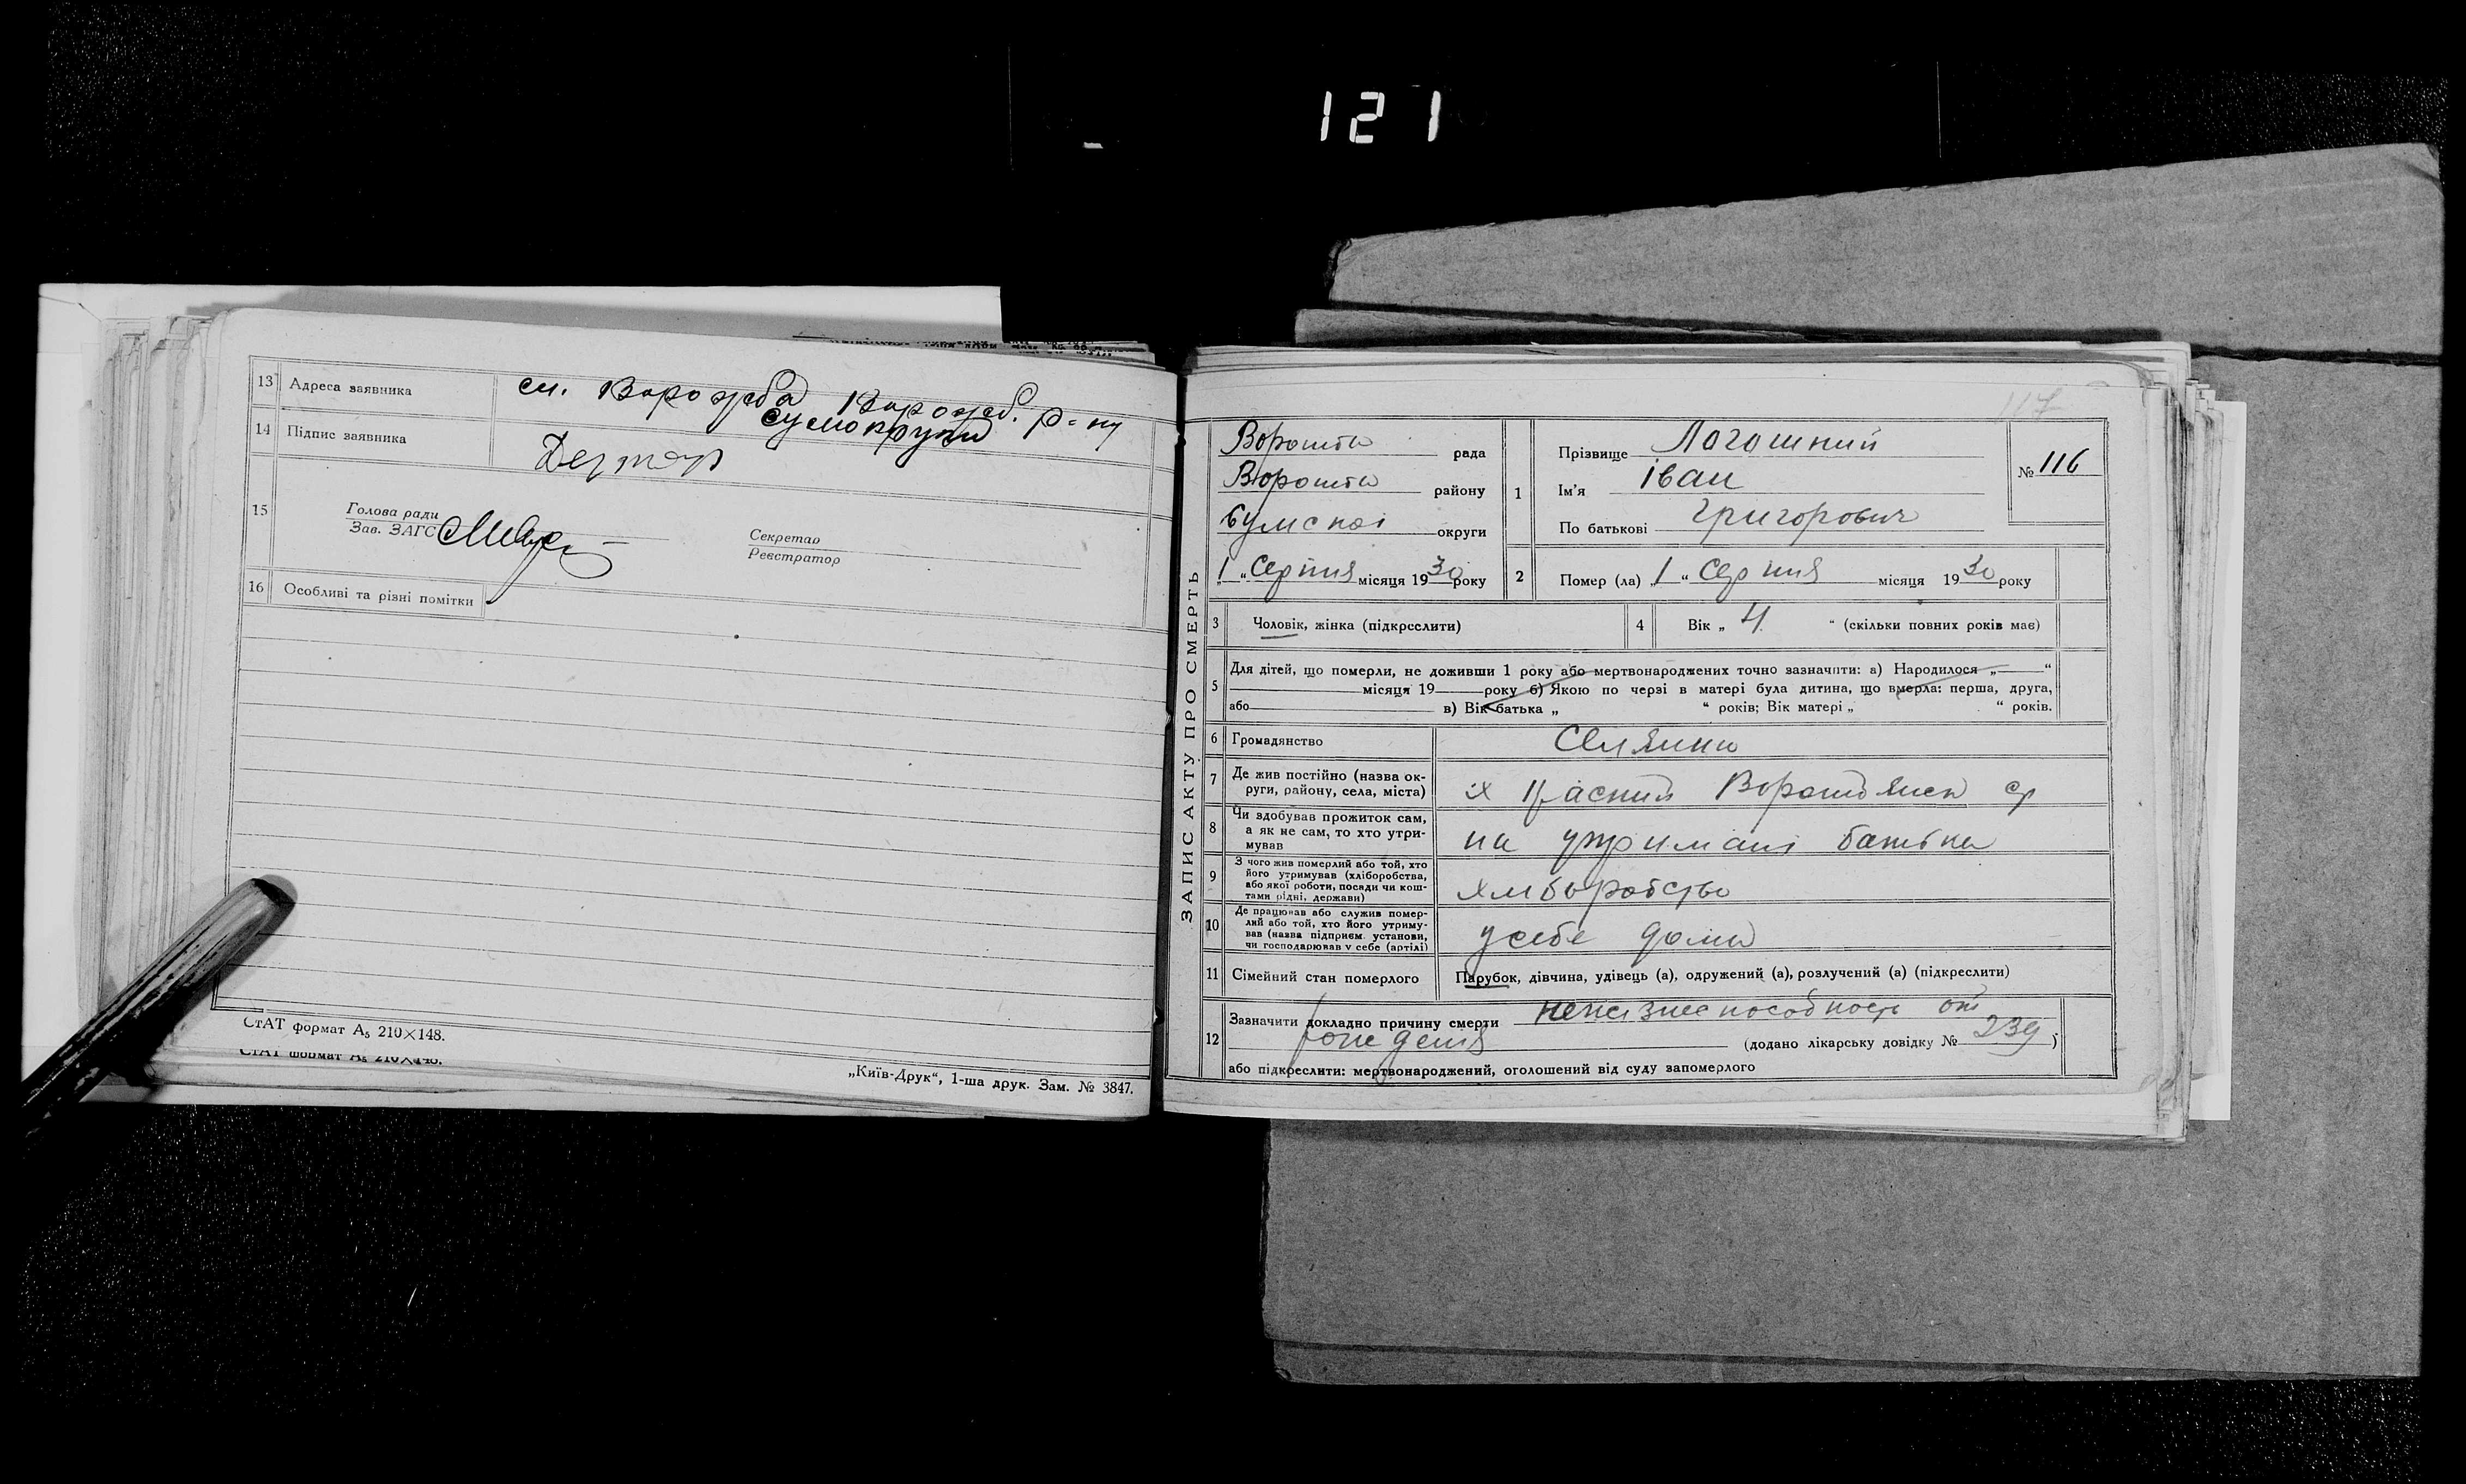 121
13 Адреса заявника см. Ворожба Ворожб. р-ну
Сумокруги
14 Підпис заявника
15 Голова ради
Зав. ЗАГС
Секретар
Реєстратор
16 Особливі та різні помітки
СтАТ формат А₅ 210×148.
СтАТ формат А₅ 210×148.
„Київ-Друк“, 1-ша друк. Зам. № 3847.
117
ЗАПИС АКТУ ПРО СМЕРТЬ
рада
району
Сумскої округи
1 „ Серпня місяця 1930 року
1 Прізвище Логошний
Ім'я Іван
По батькові Григорович
№ 116
2 Помер (ла) „1 “ Серпня місяця 1930 року
3 Чоловік, жінка (підкреслити)
4 Вік „ 4 “ (скільки повних років має)
5 Для дітей, що померли, не доживши 1 року або мертвонароджених точно зазначити: а) Народилося „ “
місяця 19 року б) Якою по черзі в матері була дитина, що вмерла: перша, друга,
або в) Вік батька „ “ років; Вік матері „ “ років.
6 Громадянство Селянин
7 Де жив постійно (назва округи, району, села, міста) х
8 Чи здобував прожиток сам,
а як не сам, то хто утримував на утримані батька
9 З чого жив померлий або той, хто
його утримував (хліборобства,
або якої роботи, посади чи коштами рідні, держави) хліборобство
10 Де працював або служив померлий або той, хто його утримував (назва підприєм. установи,
чи господарював у себе (артілі) у себе дома
11 Сімейний стан померлого Парубок, дівчина, удівець (а), одружений (а), розлучений (а) (підкреслити)
12 Зазначити докладно причину смерти нежизнеспособность от
рождения (додано лікарську довідку № 239 )
або підкреслити: мертвонароджений, оголошений від суду запомерлого